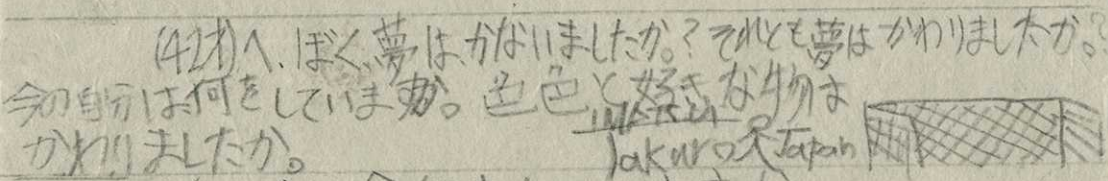 (42才)へ、ぼく、夢は、かないましたか。?それとも夢はかわりましたか。?
今の自分は何をしていますか。色色と好きな物は
かわりましたか。 Takuro Japan